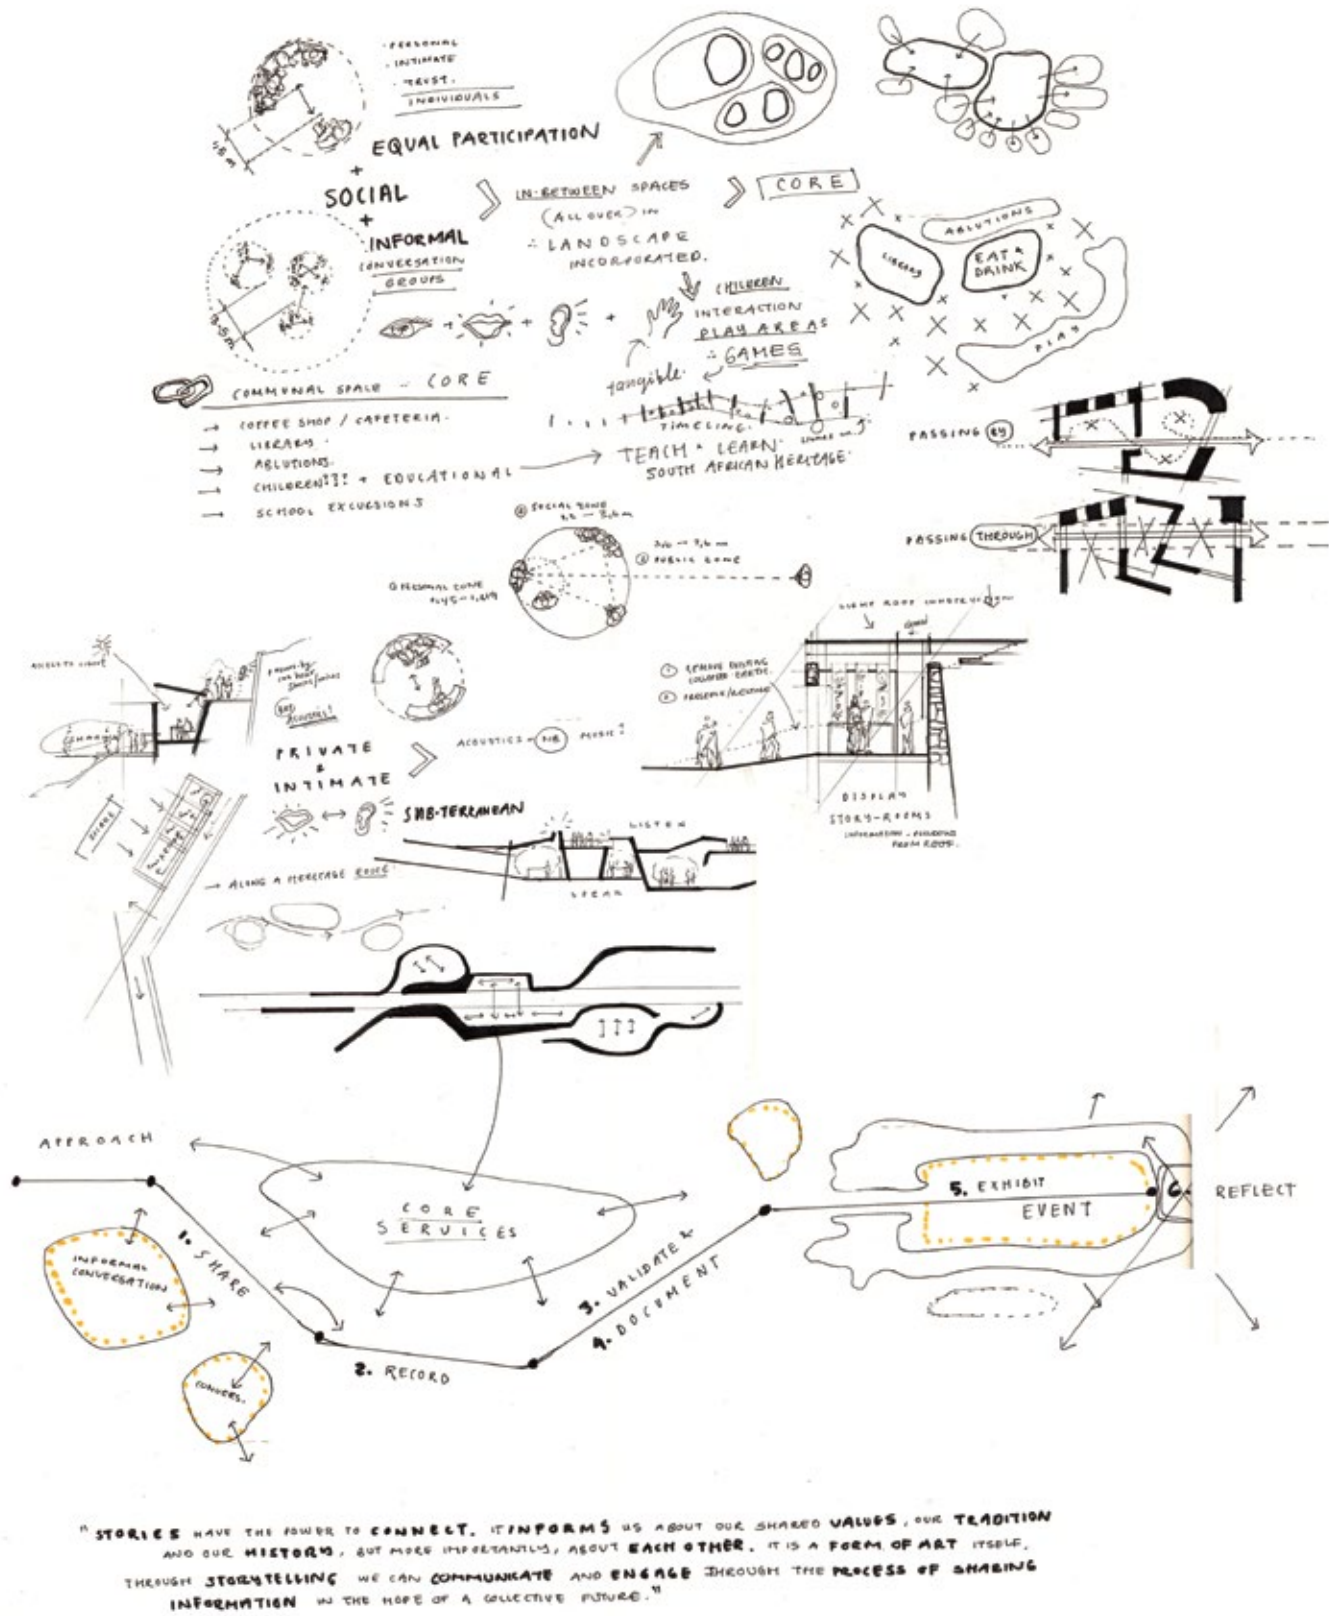 · PERSONAL
· INTIMATE
· TRUST.
INDIVIDUALS
EQUAL PARTICIPATION
+
SOCIAL
+
INFORMAL
CONVERSATION
GROUPS
IN-BETWEEN SPACES
(ALL OVER) IN
∴ LANDSCAPE
INCORPORATED.
CORE
ABLUTIONS
LIBRARY
EAT &
DRINK
PLAY
+ + +
CHILDREN
INTERACTION
PLAY AREAS
∴ GAMES
tangible.
COMMUNAL SPACE - CORE
→ COFFEE SHOP / CAFETERIA.
→ LIBRARY.
→ ABLUTIONS.
→ CHILDREN!!! + EDUCATIONAL
→ SCHOOL EXCURSIONS
TIMELINE.
TEACH + LEARN.
SOUTH AFRICAN HERITAGE.
PASSING BY
PASSING THROUGH
SOCIAL ZONE
PUBLIC ZONE
PERSONAL ZONE
① REMOVE EXISTING
COLLAPSED EARTH.
② PRESERVE/RESTORE
ACCESS TO LIGHT
SHARE
PRIVATE
&
INTIMATE
ACOUSTICS - NB MUSIC!
SUB-TERRANEAN
LISTEN
SPEAK
DISPLAY
STORY-ROOMS
FROM ROOF.
→ ALONG A HERITAGE ROUTE.
APPROACH
CORE
SERVICES
1. SHARE
INFORMAL
CONVERSATION
CONVERS.
2. RECORD
3. VALIDATE &
4. DOCUMENT
5. EXHIBIT
EVENT
6.
REFLECT
"STORIES HAVE THE POWER TO CONNECT. IT INFORMS US ABOUT OUR SHARED VALUES, OUR TRADITION
AND OUR HISTORY, BUT MORE IMPORTANTLY, ABOUT EACH OTHER. IT IS A FORM OF ART ITSELF.
THROUGH STORYTELLING WE CAN COMMUNICATE AND ENGAGE THROUGH THE PROCESS OF SHARING
INFORMATION IN THE HOPE OF A COLLECTIVE FUTURE."